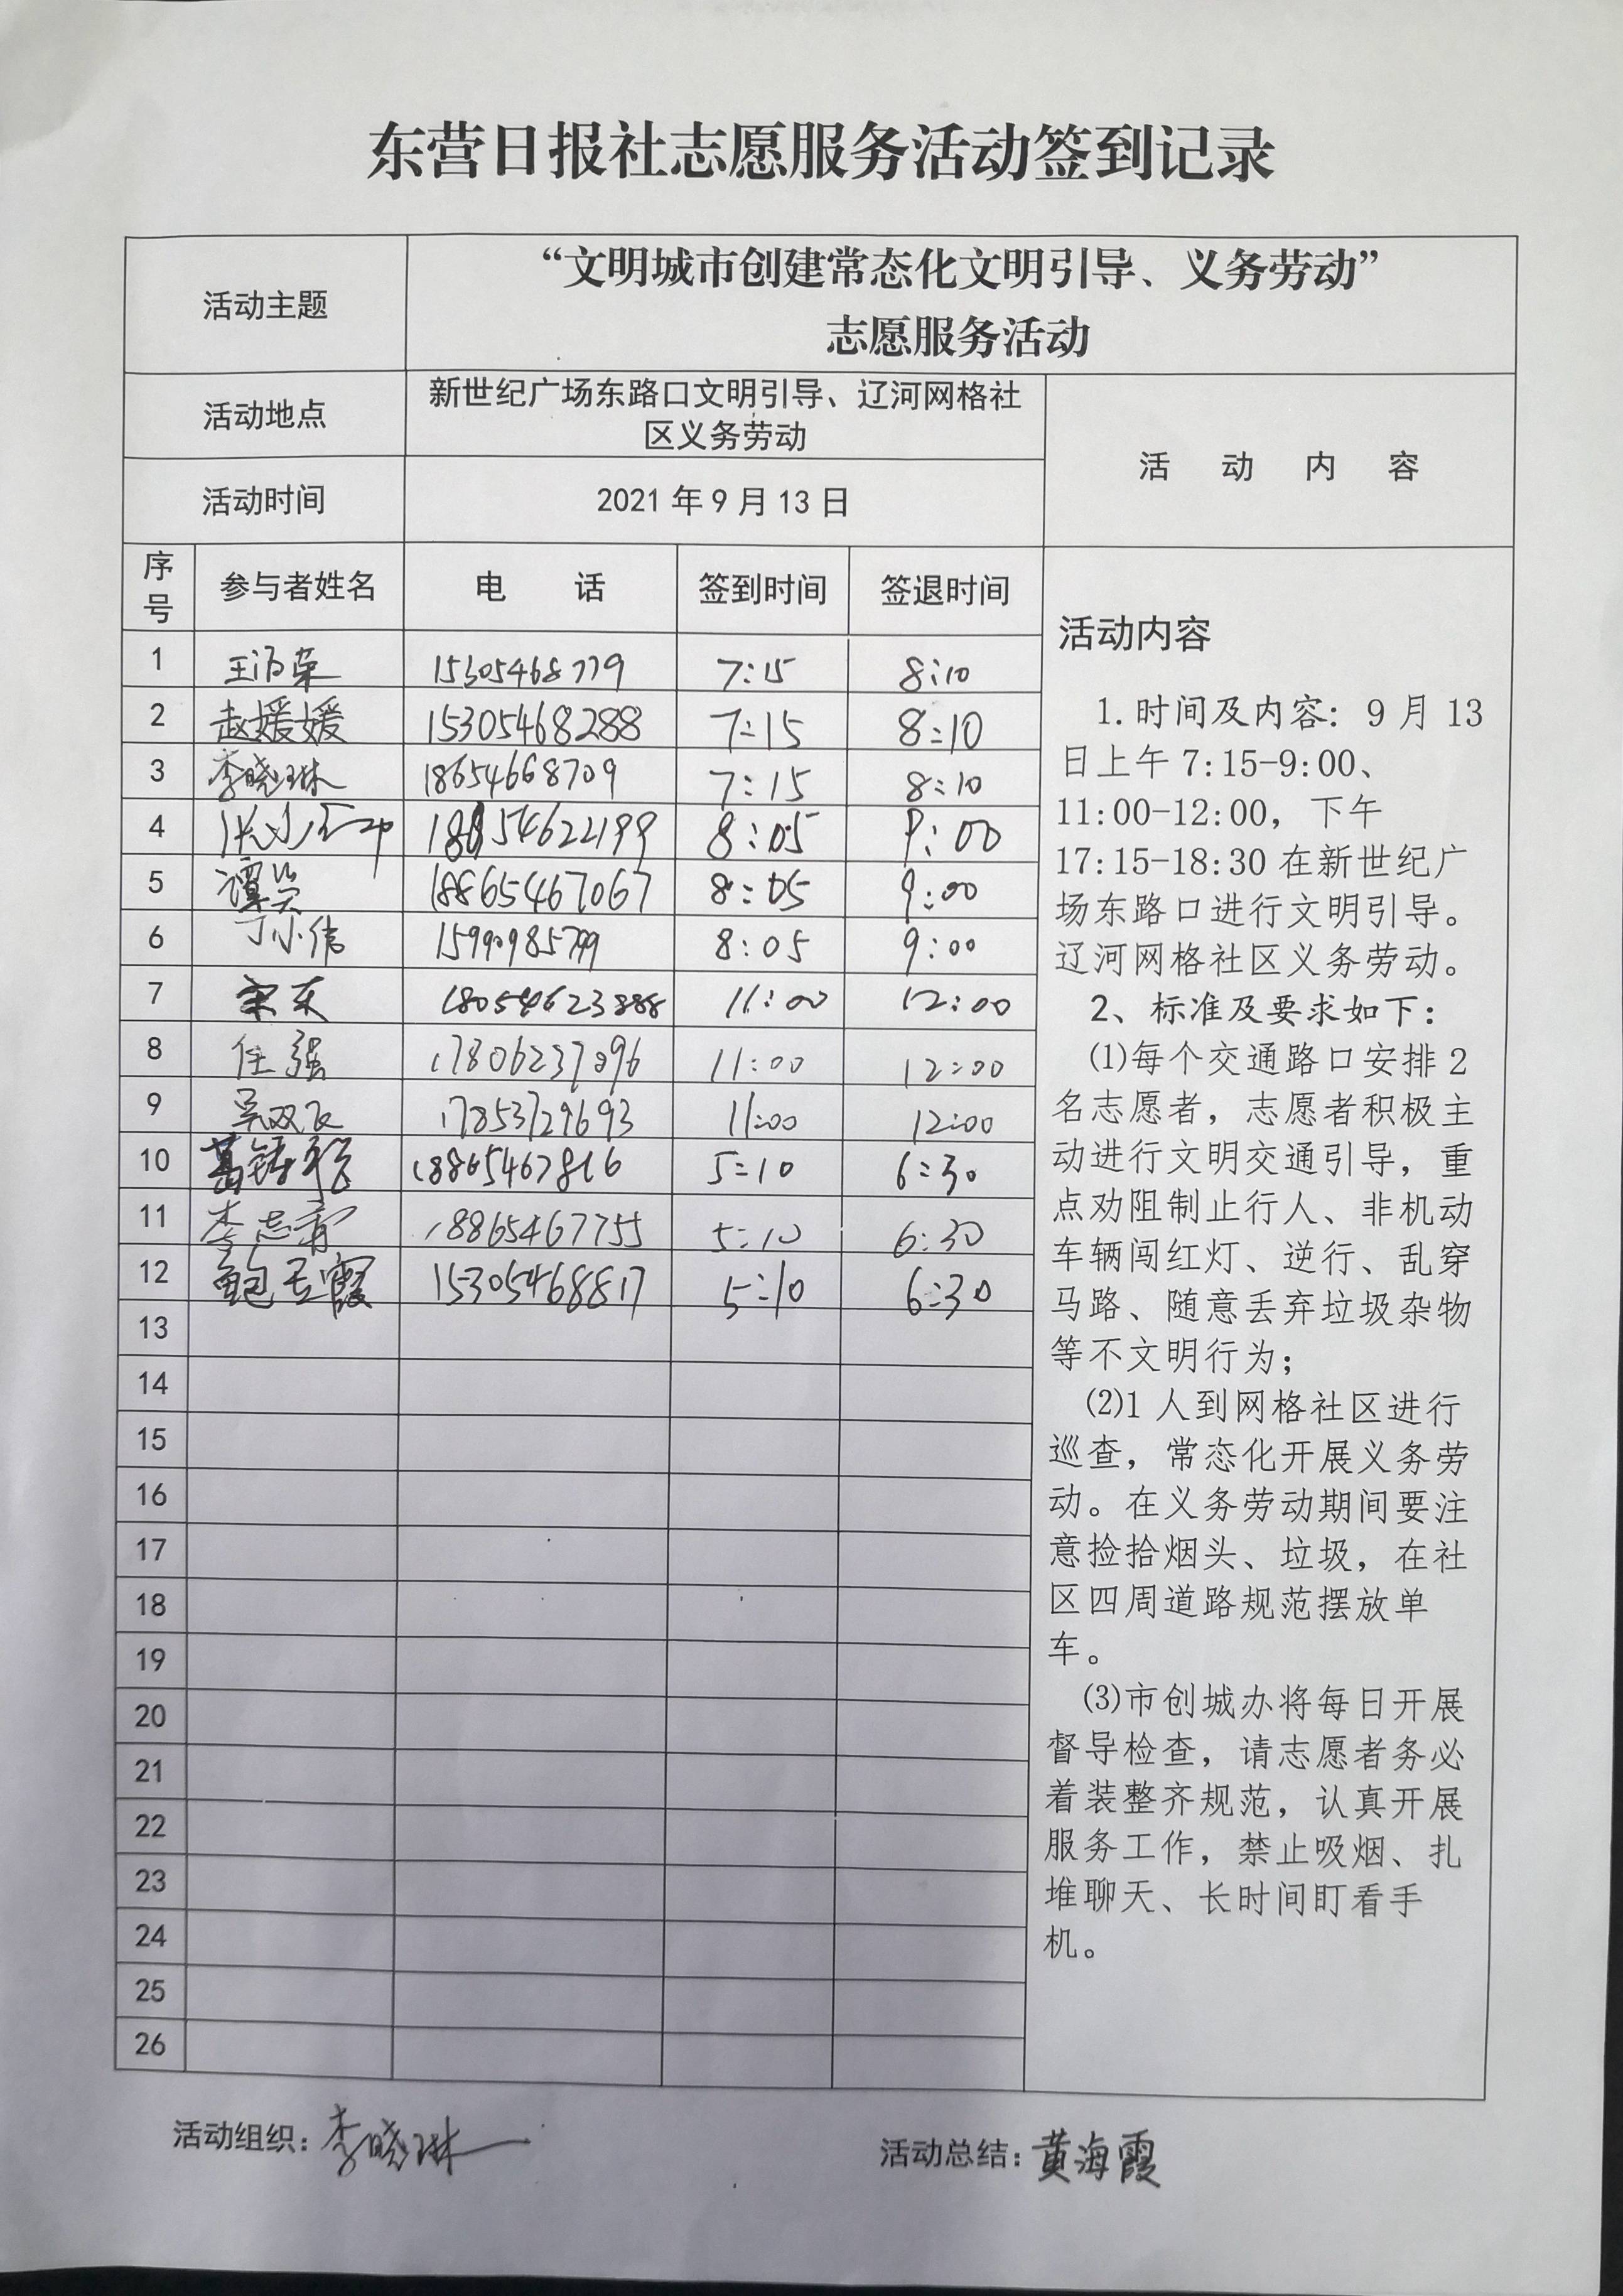 东营日报社志愿服务活动签到记录
活动主题
“文明城市创建常态化文明引导、义务劳动”
志愿服务活动
活动地点
新世纪广场东路口文明引导、辽河网格社
区义务劳动
活动时间
2021年9月13日
活 动 内 容
序号 参与者姓名 电 话 签到时间 签退时间
1 15305468779 7:15 8:10
2 赵媛媛 15305468288 7:15 8:10
3 李晓琳 18654668709 7:15 8:10
4 8:05 9:00
5 谭笑 18865467067 8:05 9:00
6 丁小伟 8:05 9:00
7 宋东 18054623888 11:00 12:00
8 任强 17806237096 11:00 12:00
9 吴双飞 17853729693 11:00 12:00
10 18865467816 5:10 6:30
11 李志 18865467755 5:10 6:30
12 鲍玉霞 15305468817 5:10 6:30
13
14
15
16
17
18
19
20
21
22
23
24
25
26
活动内容
1.时间及内容：9月13
日上午7:15-9:00、
11:00-12:00，下午
17:15-18:30在新世纪广
场东路口进行文明引导。
辽河网格社区义务劳动。
2、标准及要求如下：
⑴每个交通路口安排2
名志愿者，志愿者积极主
动进行文明交通引导，重
点劝阻制止行人、非机动
车辆闯红灯、逆行、乱穿
马路、随意丢弃垃圾杂物
等不文明行为；
⑵1人到网格社区进行
巡查，常态化开展义务劳
动。在义务劳动期间要注
意捡拾烟头、垃圾，在社
区四周道路规范摆放单
车。
⑶市创城办将每日开展
督导检查，请志愿者务必
着装整齐规范，认真开展
服务工作，禁止吸烟、扎
堆聊天、长时间盯看手
机。
活动组织：李晓琳
活动总结：黄海霞